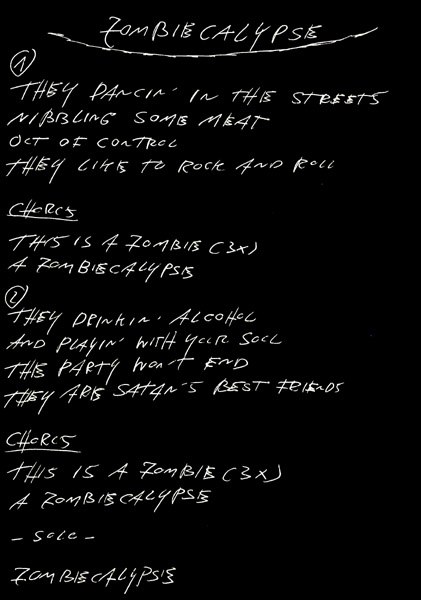 ZOMBIECALYPSE
1
THEY DANCIN' IN THE STREETS
NIBBLING SOME MEAT
OUT OF CONTROL
THEY LIKE TO ROCK AND ROLL
CHORUS
THIS IS A ZOMBIE (3X)
A ZOMBIECALYPSE
2
THEY DRINKIN' ALCOHOL
AND PLAYIN' WITH YOUR SOUL
THIS PARTY WON'T END
THEY ARE SATAN'S BEST FRIENDS
CHORUS
THIS IS A ZOMBIE (3X)
A ZOMBIECALYPSE
- SOLO -
ZOMBIECALYPSE